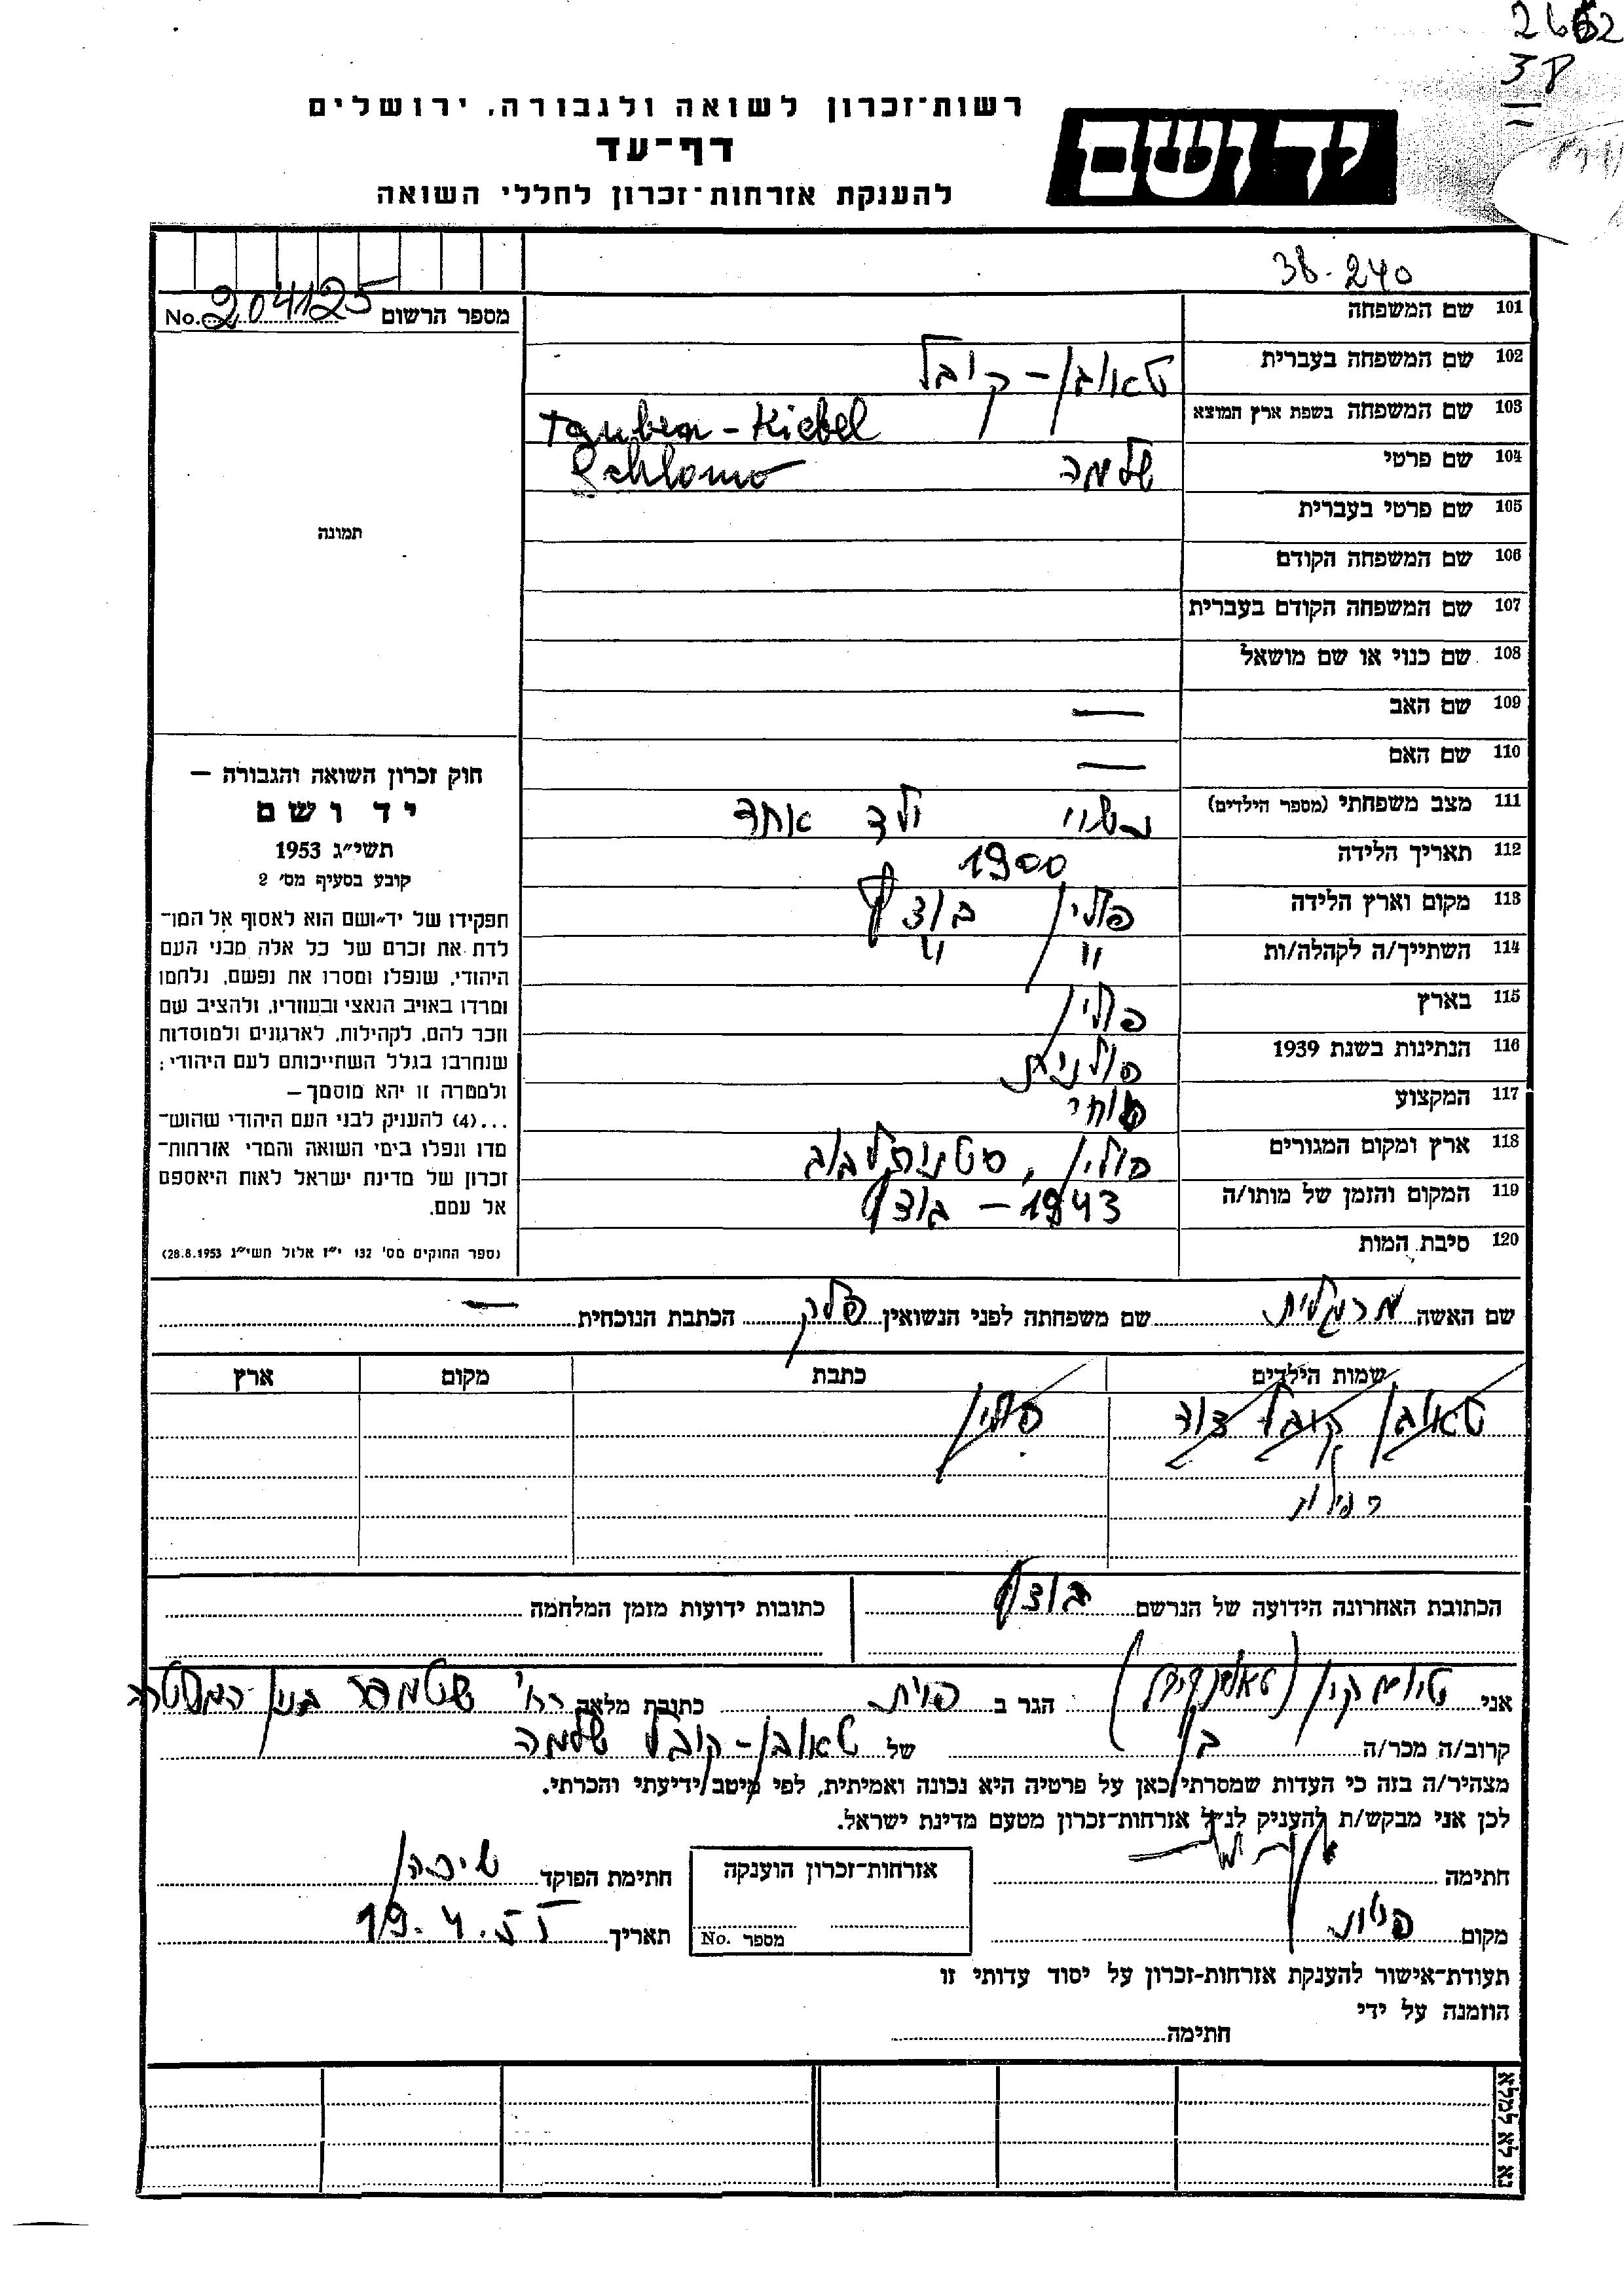 2662
38
רשות־זכרון לשואה ולגבורה, ירושלים
יד ושם
דף־עד
להענקת אזרחות־זכרון לחללי השואה
38-240
מספר הרשום No. 204125
101 שם המשפחה
102 שם המשפחה בעברית טאובן - קובל
103 שם המשפחה בשפת ארץ המוצא Tauben - Kiebel
104 שם פרטי שלמה Schlomo
105 שם פרטי בעברית
תמונה
106 שם המשפחה הקודם
107 שם המשפחה הקודם בעברית
108 שם כנוי או שם מושאל
109 שם האב —
110 שם האם —
111 מצב משפחתי (מספר הילדים) נשוי ילד אחד
112 תאריך הלידה 1900
113 מקום וארץ הלידה פולין
114 השתייך/ה לקהלה/ות " "
115 בארץ פולין
116 הנתינות בשנת 1939 פולנית
117 המקצוע סוחר
118 ארץ ומקום המגורים פולין,
119 המקום והזמן של מותו/ה 1943 -
120 סיבת המות
חוק זכרון השואה והגבורה —
יד ושם
תשי״ג 1953
קובע בסעיף מס׳ 2
תפקידו של יד־ושם הוא לאסוף אל המו־
לדת את זכרם של כל אלה מבני העם
היהודי, שנפלו ומסרו את נפשם, נלחמו
ומרדו באויב הנאצי ובעוזריו, ולהציב שם
וזכר להם, לקהילות, לארגונים ולמוסדות
שנחרבו בגלל השתייכותם לעם היהודי;
ולמטרה זו יהא מוסמך —
...(4) להעניק לבני העם היהודי שהוש־
מדו ונפלו בימי השואה והמרי אזרחות־
זכרון של מדינת ישראל לאות היאספם
אל עמם.
(ספר החוקים מס׳ 132 י״ז אלול תשי״ג 28.8.1953)
שם האשה מרגלית שם משפחתה לפני הנשואין הכתבת הנוכחית —
שמות הילדים כתבת מקום ארץ
טאובן קובל דוד פולין
הכתובת האחרונה הידועה של הנרשם כתובות ידועות מזמן המלחמה
אני הגר ב כתובת מלאה רח׳ שטמפר בנין המשטרה
קרוב/ה מכר/ה בן של טאובן - קובל שלמה
מצהיר/ה בזה כי העדות שמסרתי כאן על פרטיה היא נכונה ואמיתית, לפי מיטב ידיעתי והכרתי.
לכן אני מבקש/ת להעניק לנ״ל אזרחות־זכרון מטעם מדינת ישראל.
חתימה
אזרחות־זכרון הוענקה
חתימת הפוקד
מקום
מספר No.
תאריך 19.4.55
תעודת־אישור להענקת אזרחות־זכרון על יסוד עדותי זו
הוזמנה על ידי
חתימה
נא לא למלא